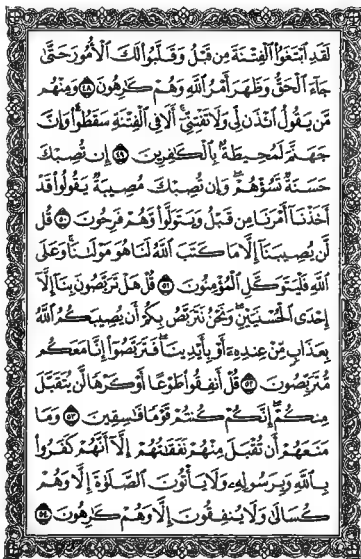 لَقَدِ ٱبْتَغَوُاْ ٱلْفِتْنَةَ مِن قَبْلُ وَقَلَّبُواْ لَكَ ٱلْأُمُورَ حَتَّىٰ
جَآءَ ٱلْحَقُّ وَظَهَرَ أَمْرُ ٱللَّهِ وَهُمْ كَٰرِهُونَ ٤٨ وَمِنْهُم
مَّن يَقُولُ ٱئْذَن لِّى وَلَا تَفْتِنِّىٓ أَلَا فِى ٱلْفِتْنَةِ سَقَطُواْ وَإِنَّ
جَهَنَّمَ لَمُحِيطَةٌۢ بِٱلْكَٰفِرِينَ ٤٩ إِن تُصِبْكَ
حَسَنَةٌ تَسُؤْهُمْ وَإِن تُصِبْكَ مُصِيبَةٌ يَقُولُواْ قَدْ
أَخَذْنَآ أَمْرَنَا مِن قَبْلُ وَيَتَوَلَّواْ وَّهُمْ فَرِحُونَ ٥٠ قُل
لَّن يُصِيبَنَآ إِلَّا مَا كَتَبَ ٱللَّهُ لَنَا هُوَ مَوْلَىٰنَا وَعَلَى
ٱللَّهِ فَلْيَتَوَكَّلِ ٱلْمُؤْمِنُونَ ٥١ قُلْ هَلْ تَرَبَّصُونَ بِنَآ إِلَّآ
إِحْدَى ٱلْحُسْنَيَيْنِ وَنَحْنُ نَتَرَبَّصُ بِكُمْ أَن يُصِيبَكُمُ ٱللَّهُ
بِعَذَابٍ مِّنْ عِندِهِۦٓ أَوْ بِأَيْدِينَا فَتَرَبَّصُوٓاْ إِنَّا مَعَكُم
مُّتَرَبِّصُونَ ٥٢ قُلْ أَنفِقُواْ طَوْعًا أَوْ كَرْهًا لَّن يُتَقَبَّلَ
مِنكُمْ إِنَّكُمْ كُنتُمْ قَوْمًا فَٰسِقِينَ ٥٣ وَمَا
مَنَعَهُمْ أَن تُقْبَلَ مِنْهُمْ نَفَقَٰتُهُمْ إِلَّآ أَنَّهُمْ كَفَرُواْ
بِٱللَّهِ وَبِرَسُولِهِۦ وَلَا يَأْتُونَ ٱلصَّلَوٰةَ إِلَّا وَهُمْ
كُسَالَىٰ وَلَا يُنفِقُونَ إِلَّا وَهُمْ كَٰرِهُونَ ٥٤